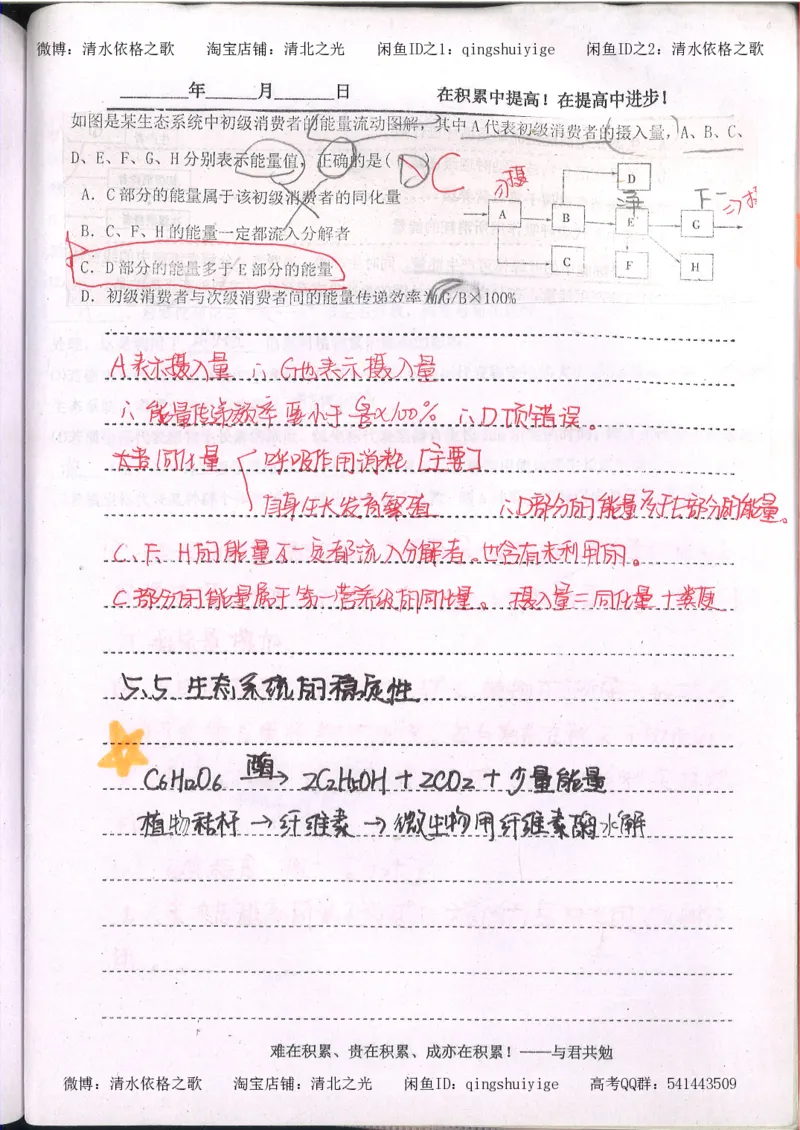 微博：清水依格之歌 淘宝店铺：清北之光 闲鱼ID之1：qingshuiyige 闲鱼ID之2：清水依格之歌
____年____月____日 在积累中提高！在提高中进步！
如图是某生态系统中初级消费者的能量流动图解，其中A代表初级消费者的摄入量，A、B、C、
D、E、F、G、H分别表示能量值，正确的是( )
C
A．C部分的能量属于该初级消费者的同化量
B．C、F、H的能量一定都流入分解者
C．D部分的能量多于E部分的能量
D．初级消费者与次级消费者间的能量传递效率为G/B×100%
摄
D
净
下一
A
B
E
G
C
F
H
A表示摄入量 ∴G也表示摄入量
∴能量传递效率要小于G/B×100% ∴D项错误。
同化量 呼吸作用消耗[主要]
自身生长发育繁殖 ∴D部分的能量多于E部分的能量。
C、F、H的能量不一定都流入分解者。也含有未利用的。
C部分的能量属于第一营养级的同化量。 摄入量=同化量+粪便
5.5 生态系统的稳定性
C6H12O6 酶→ 2C2H5OH+2CO2+少量能量
植物秸秆→纤维素→微生物用纤维素酶水解
难在积累、贵在积累、成亦在积累！——与君共勉
微博：清水依格之歌 淘宝店铺：清北之光 闲鱼ID：qingshuiyige 高考QQ群：541443509